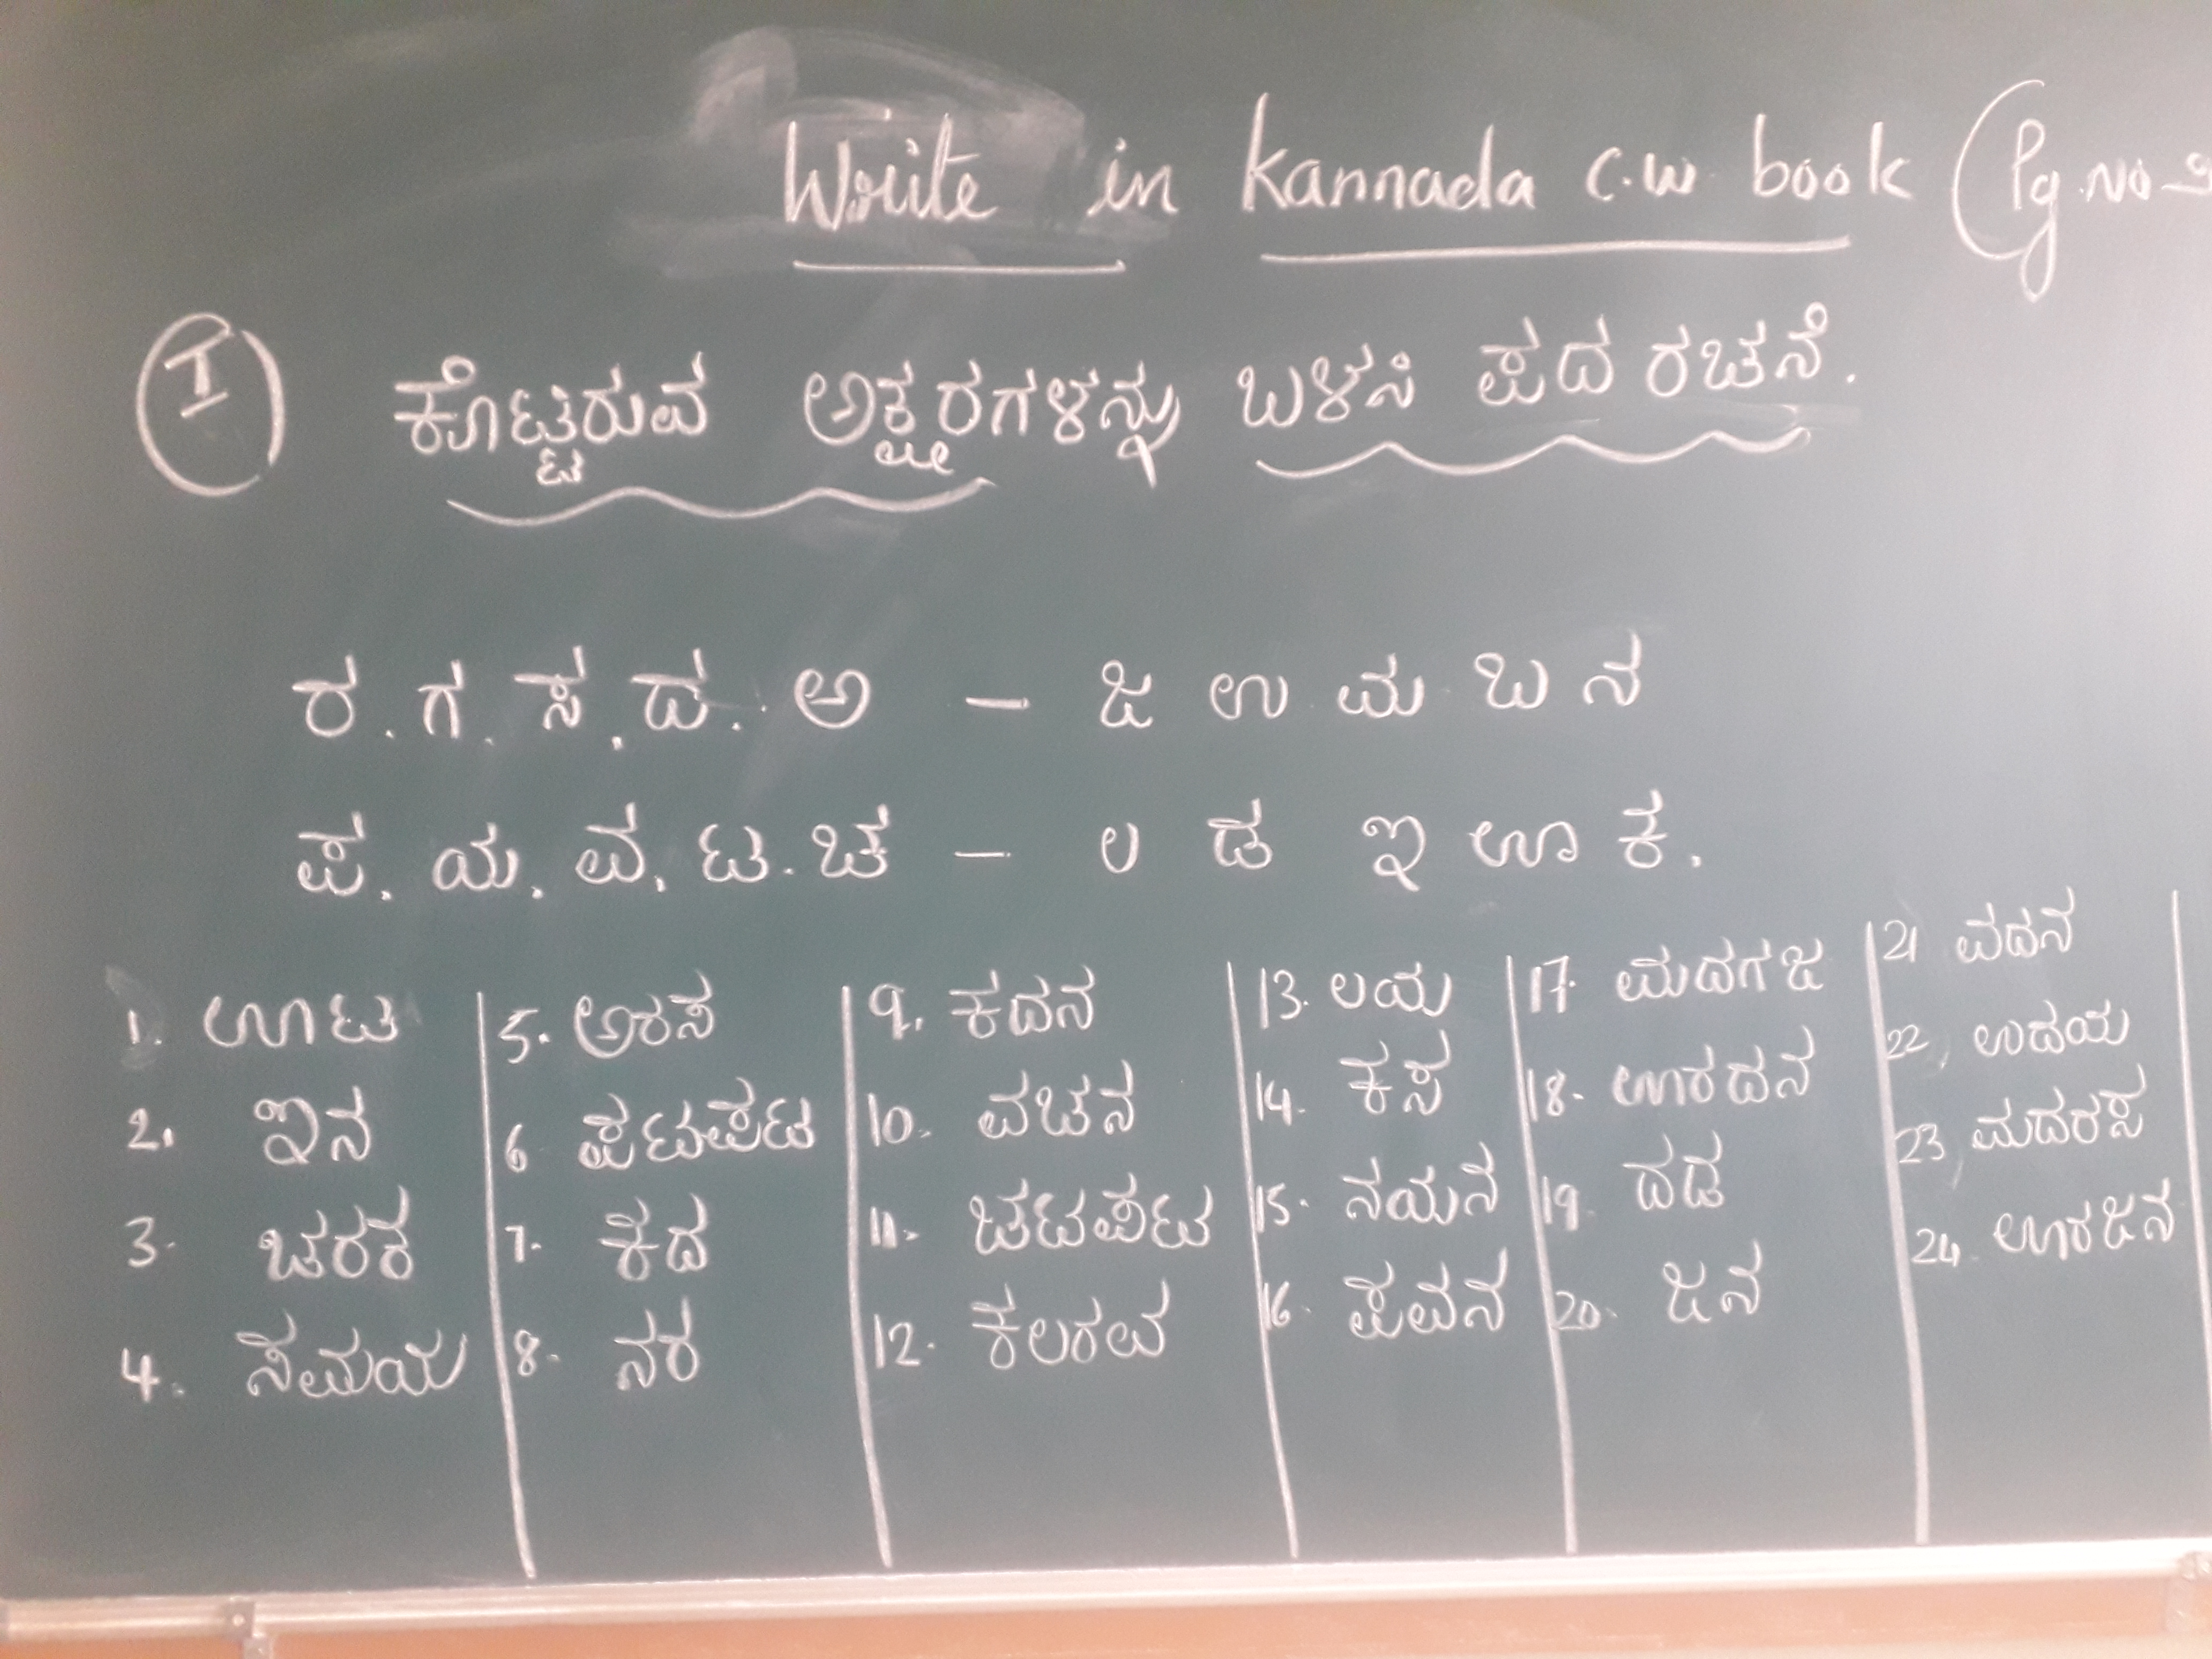 Write in Kannada C.W. book (Pg.No
I ಕೊಟ್ಟಿರುವ ಅಕ್ಷರಗಳನ್ನು ಬಳಸಿ ಪದ ರಚನೆ.
ರ . ಗ . ಸ . ದ . ಅ — ಜ ಉ ಮ ಬ ನ
ಪ . ಯ . ವ . ಟ . ಚ — ಲ ಡ ಇ ಊ ಕ .
1. ಊಟ
2. ಇನ
3. ಚರಕ
4. ಸಮಯ
5. ಅರಸ
6 ಪಟಪಟ
7. ಕದ
8. ನರ
9. ಕದನ
10. ವಚನ
11. ಚಟಪಟ
12. ಕಲರವ
13. ಲಯ
14. ಕಸ
15. ನಯನ
16. ಪವನ
17. ಮದಗಜ
18. ಊರದನ
19. ದಡ
20. ಜನ
21 ವದನ
22, ಉದಯ
23 ಮದರಸ
24. ಊರಜನ